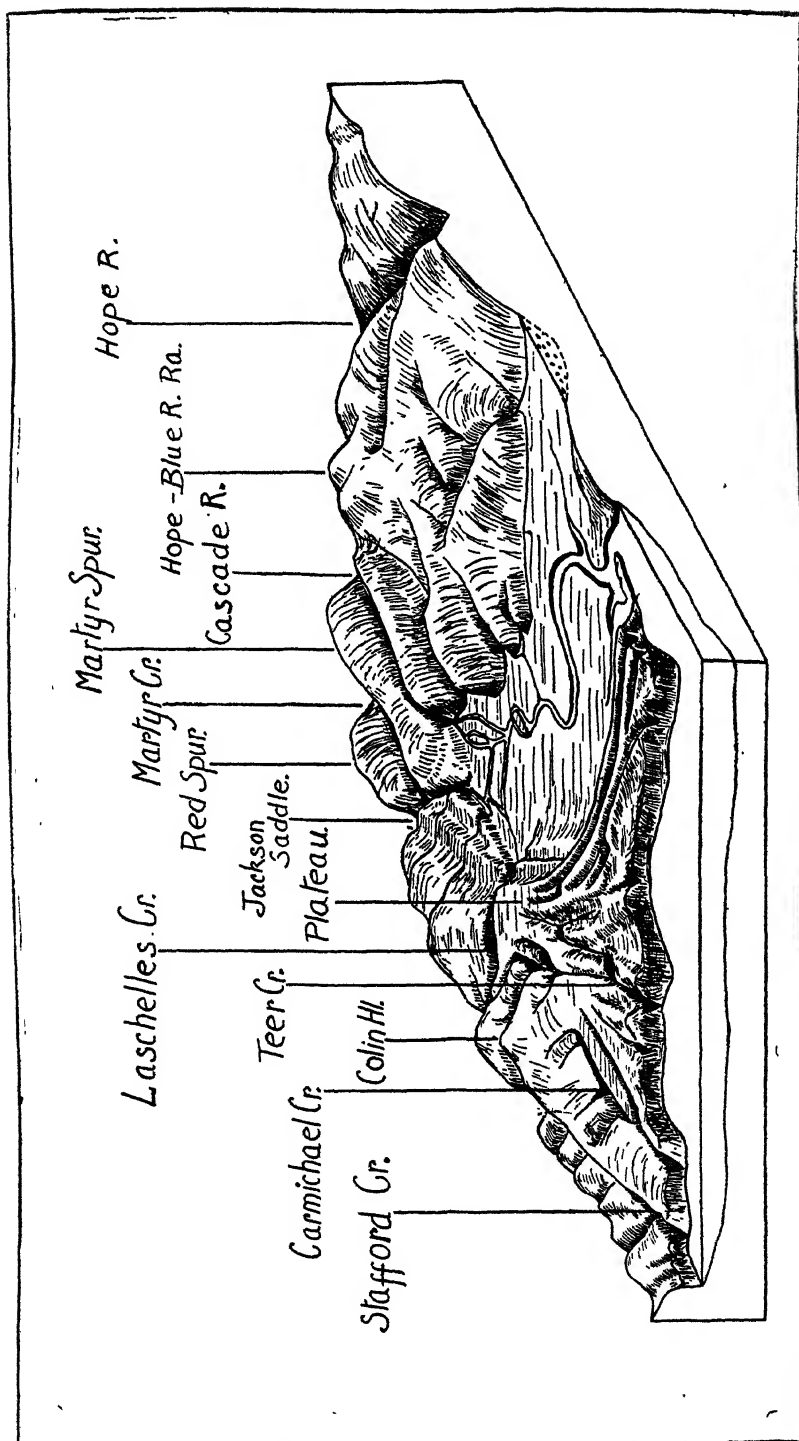 Stafford Cr.
Carmichael Cr.
Colin Hl.
Teer Cr.
Laschelles Cr.
Plateau.
Jackson
Saddle.
Red Spur.
Martyr Cr.
Martyr Spur.
Cascade R.
Hope-Blue R. Ra.
Hope R.